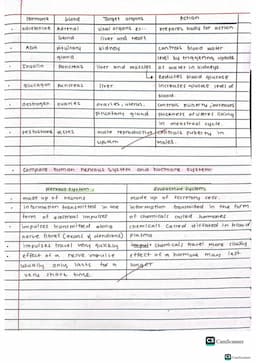 Hormone gland Target organs Action
• adrenaline adrenal vital organs e:- prepares body for action
gland liver and heart
• ADH pituitary kidney controls blood water
gland level by triggering uptake
of water in kidneys
• Insulin Pancreas liver and muscles Reduces blood glucose
• glucagon Pancreas liver increases glucose level of
blood
• oestrogen ovaries ovaries, uterus, controls puberty, increases
pituitary gland thickness of uterus lining
in menstrual cycle.
• testosterone testes male reproductive controls puberty in
system males.
• Compare human nervous system and hormone system:
Nervous system:- Endocrine system
• made up of neurons made up of secretory cells.
• information transmitted in the information transmitted in the form
form of electrical impulses of chemicals called hormones
• impulses transmitted along chemicals carried dissolved in blood
nerve fibres (axons & dendrons) plasma
• impulses travel very quickly chemicals travel more slowly
• effect of a nerve impulse effect of a hormone may last
usually only lasts for a longer
very short time.
CS CamScanner
CS CamScanner